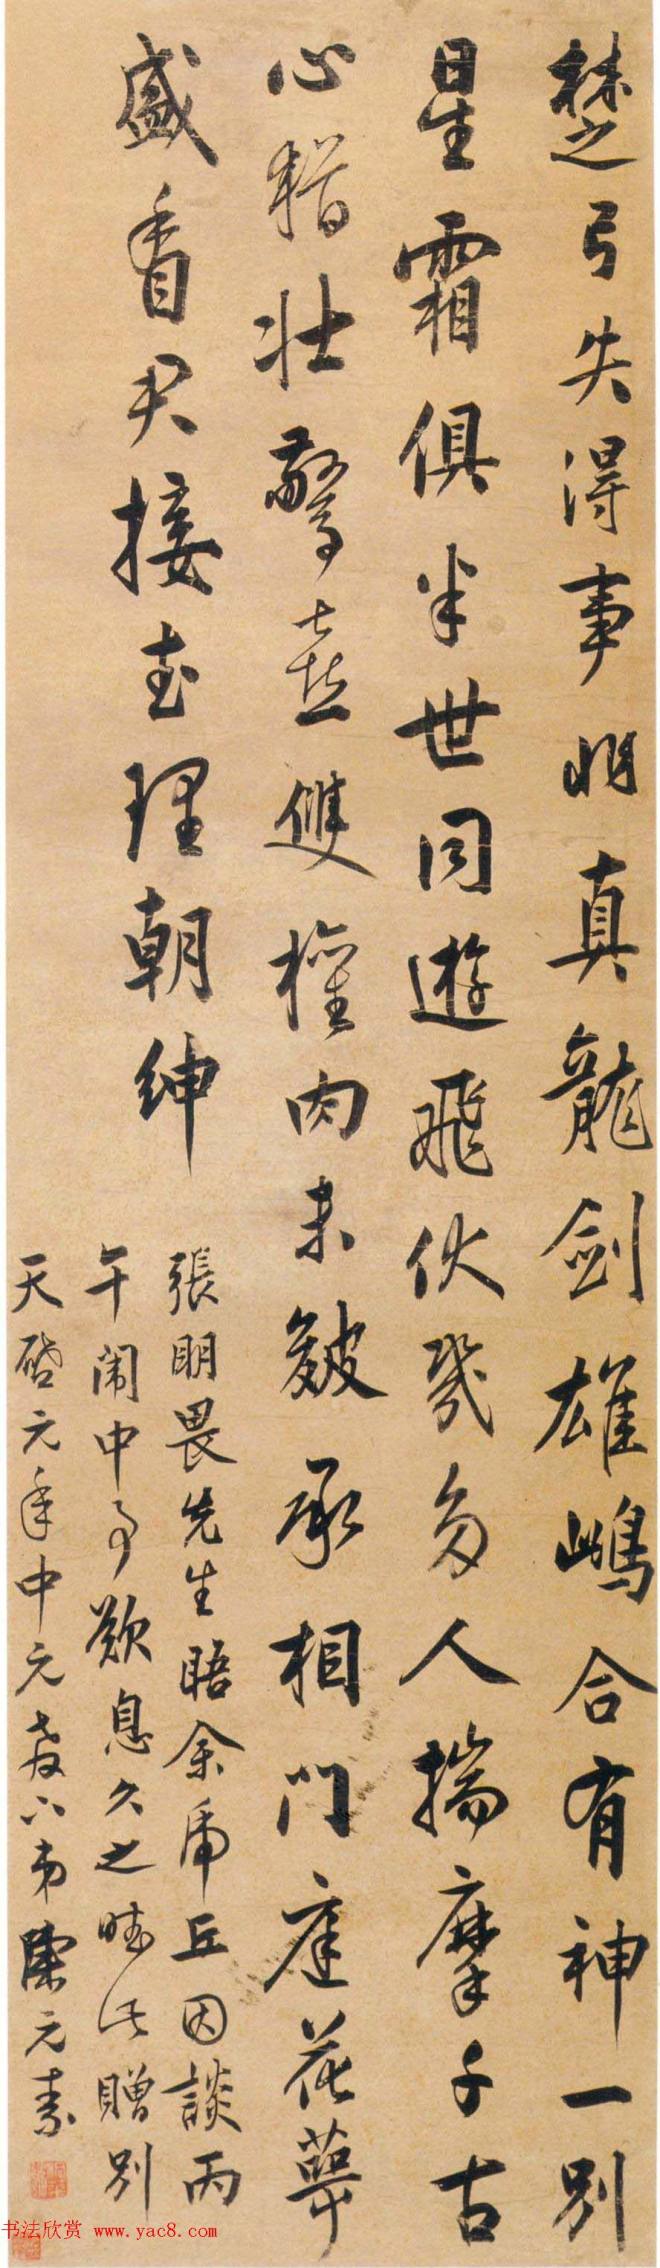 楚弓失得事非真龍劍雄鳴合有神一別
星霜俱半世同遊飛伏幾多人揣摩千古
心猶壯驚喜雙權肉未皴承相門庭花萼
盛看君接武理朝紳
張明畏先生晤余虎丘因談丙
午闈中事歎息久之賦此贈別
天啟元年中元教下弟陳元素
书法欣赏 www.yac8.com